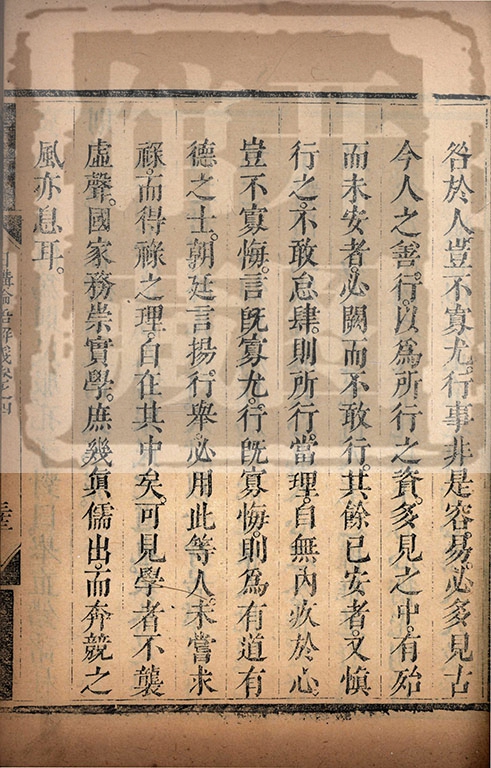 咎於人豈不寡尤。行事非是容易。必多見古
今人之善行。以為所行之資。多見之中。有殆
而未安者。必闕而不敢行。其餘已安者。又慎
行之。不敢怠肆。則所行當理。自無內疚於心。
豈不寡悔。言既寡尤。行既寡悔。則為有道有
德之士。朝廷言揚。行舉。必用此等人。未嘗求
祿。而得祿之理。自在其中矣。可見學者不襲
虛聲。國家務崇實學。庶幾眞儒出。而奔競之
風亦息耳。
日講論語解義卷之四